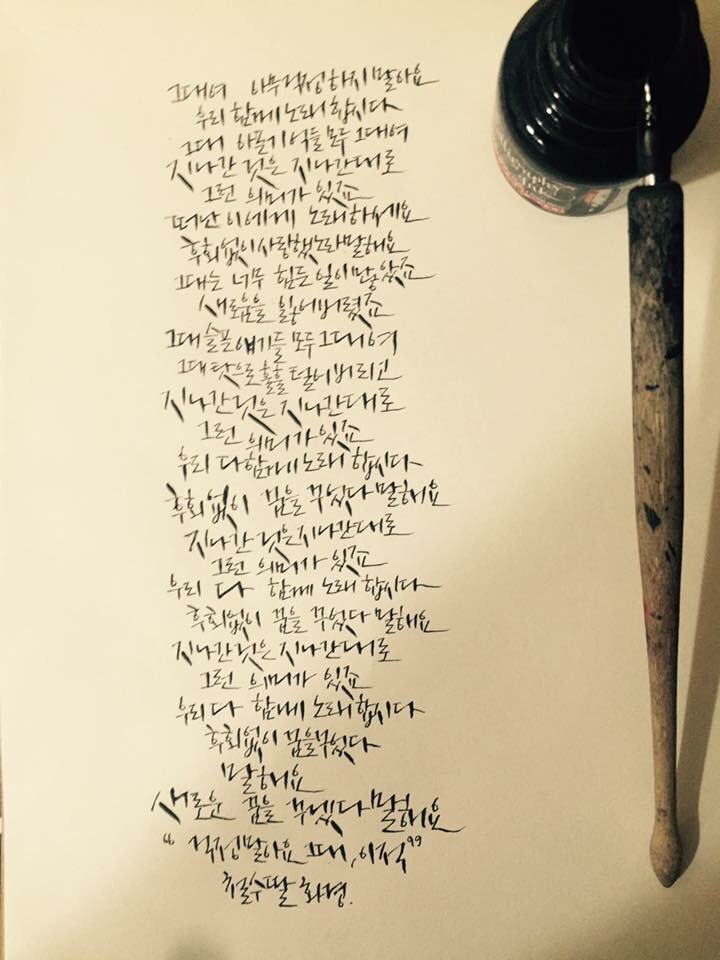 그대여 아무걱정하지말아요
우리 함께 노래 합시다
그대 아픔기억들 모두 그대여
지나간 것은 지나간대로
그런 의미가 있죠
떠난이에게 노래하세요
후회없이사랑했노라말해요
그대는 너무 힘든일이많았죠
새로움을 잃어버렸죠
그대슬픈얘기들 모두 그대여
그대탓으로훌훌 털어버리고
지나간것은 지나간대로
그런 의미가 있죠
우리 다함께 노래 합시다
후회없이 꿈을 꾸었다 말해요
지나간것은지나간대로
그런 의미가 있죠
우리 다 함께 노래 합시다
후회없이 꿈을 꾸었다 말해요
지나간것은 지나간대로
그런 의미가 있죠
우리다 함께 노래합시다
후회없이 꿈을꾸었다
말해요
새로운 꿈을 꾸겠다말해요
“ 걱정말아요 그대, 이적”
철수딸 화경.
Calligraphy
Ink